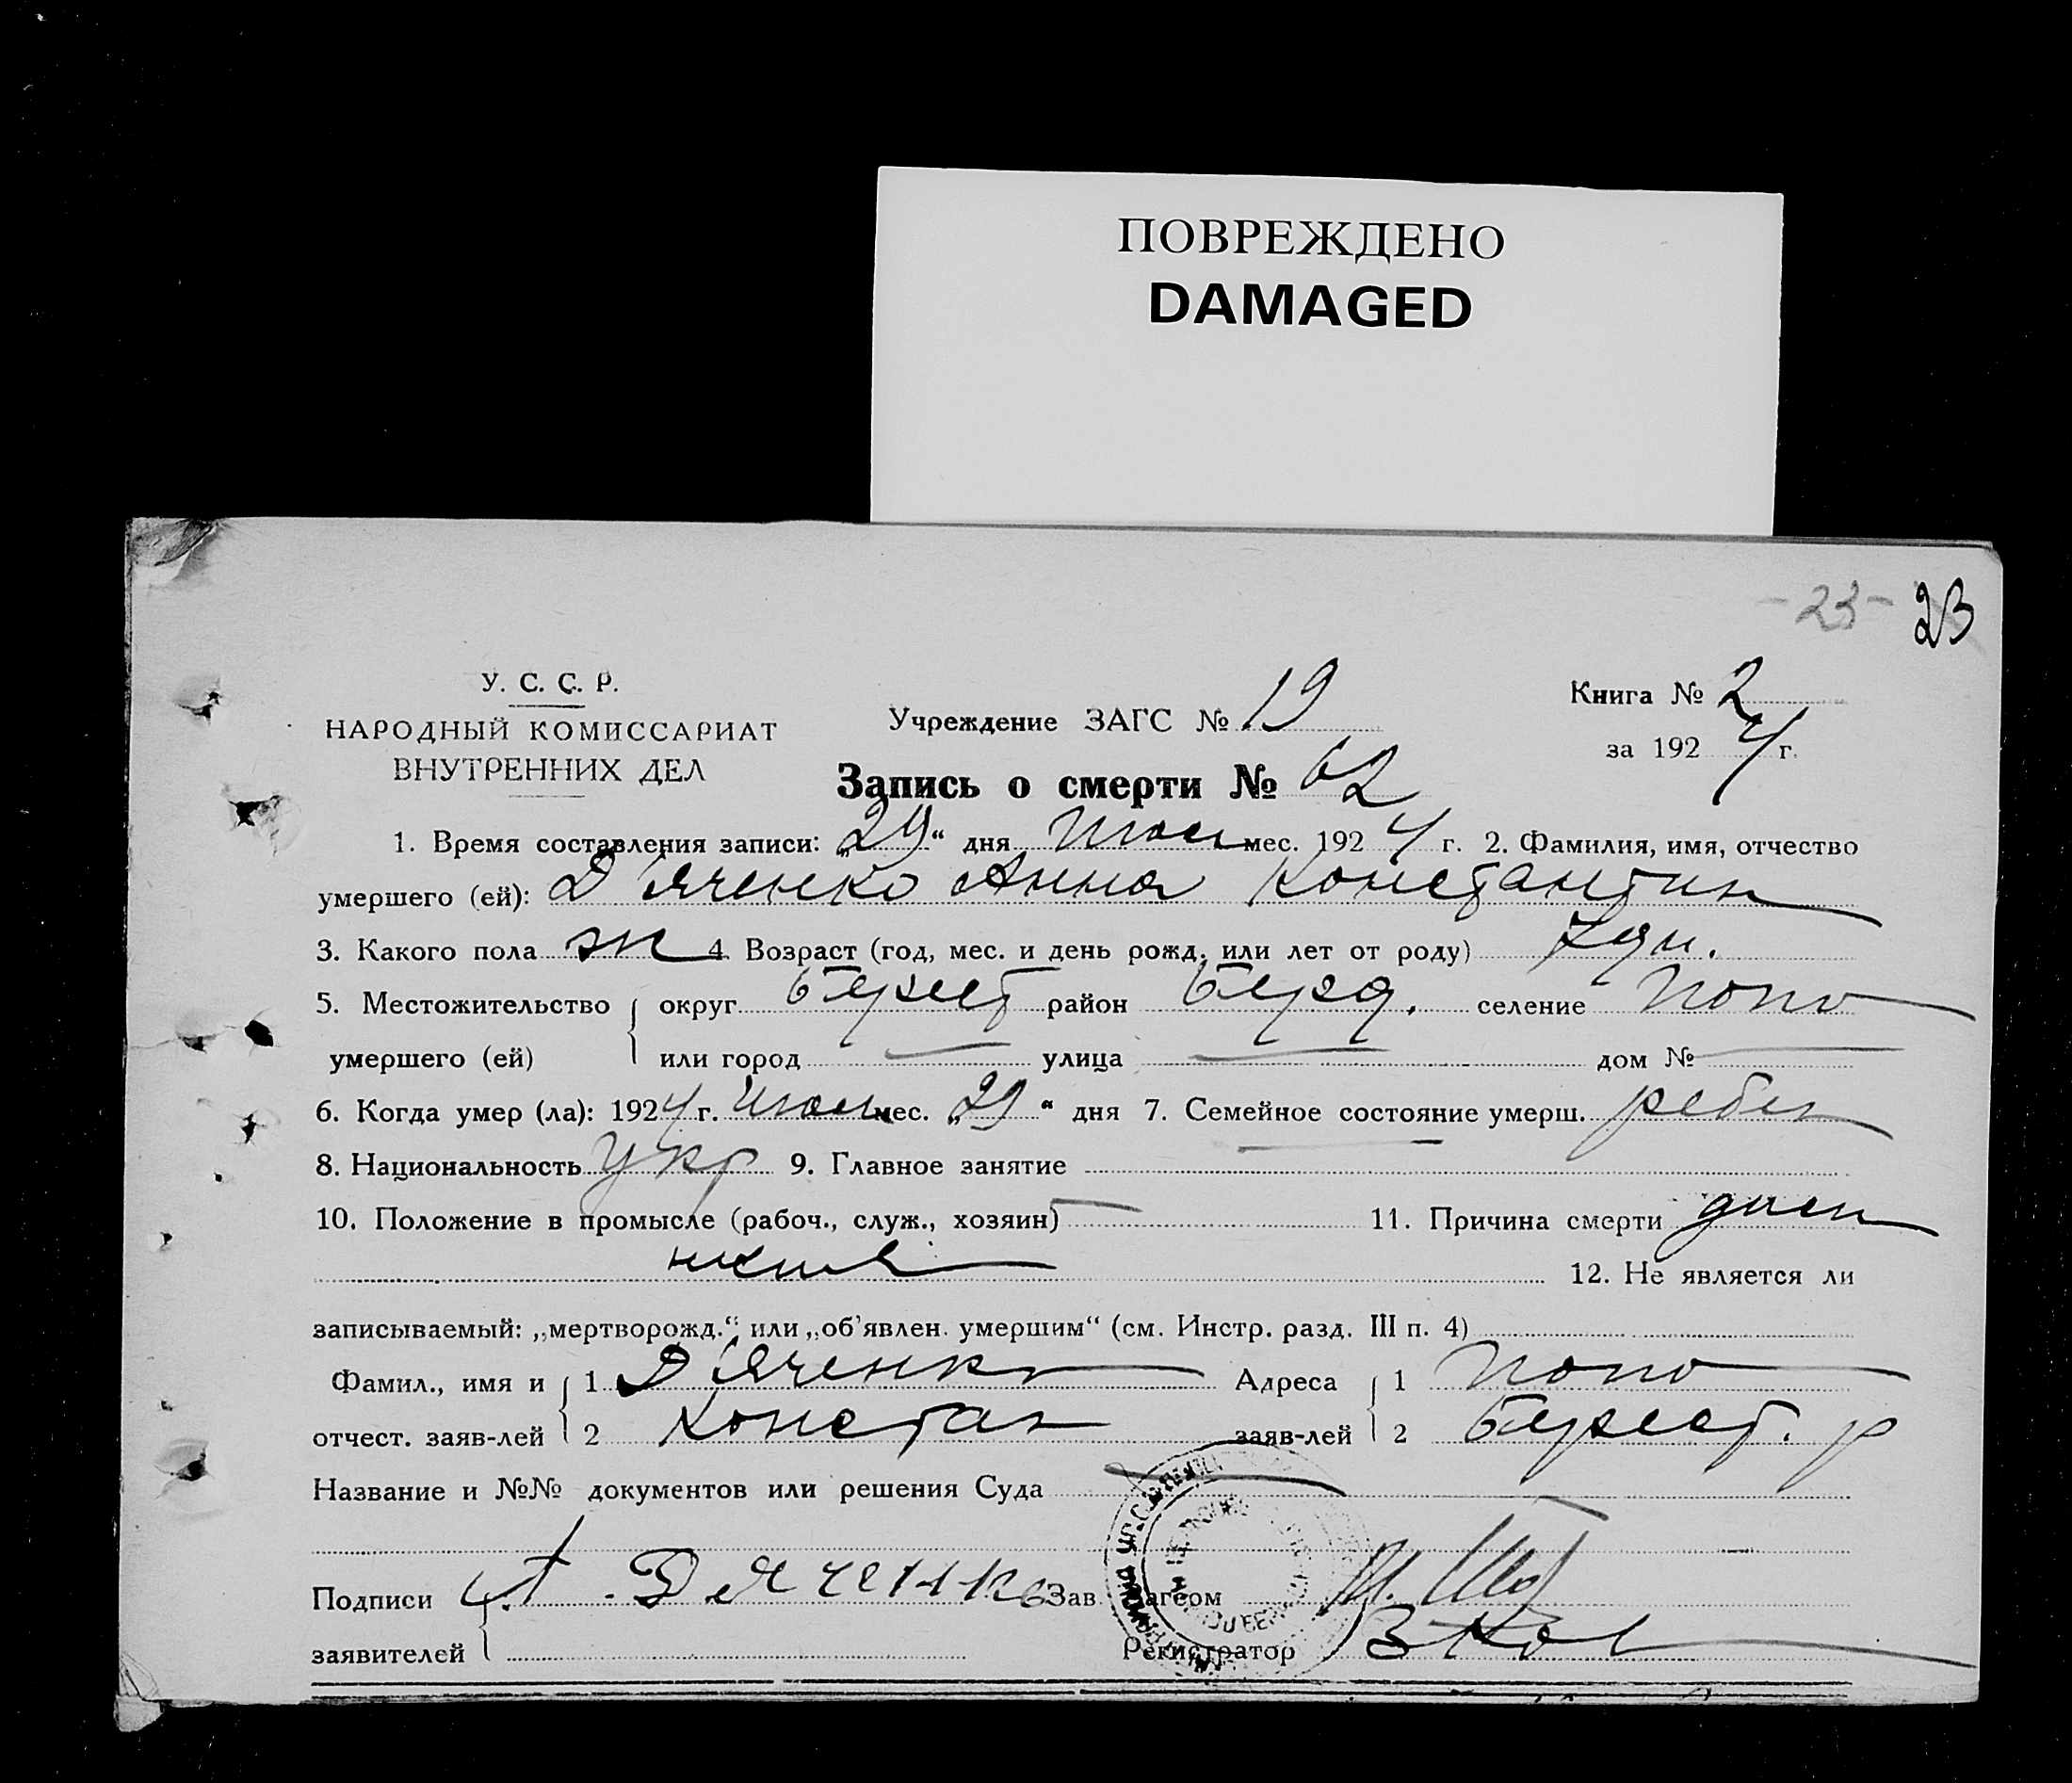 ПОВРЕЖДЕНО
DAMAGED
-23- 23
У. С. С. Р.
НАРОДНЫЙ КОМИССАРИАТ
ВНУТРЕННИХ ДЕЛ
Учреждение ЗАГС № 19
Книга № 2
за 1924 г.
Запись о смерти № 62
1. Время составления записи: „29“ дня мес. 1924 г. 2. Фамилия, имя, отчество
умершего (ей): Д'яченко Анна Константин
3. Какого пола ж 4. Возраст (год, мес. и день рожд. или лет от роду) 7 дн.
5. Местожительство округ район Берд. селение Попо
умершего (ей) или город — улица — дом № —
6. Когда умер (ла): 1924 г. мес. „29“ дня 7. Семейное состояние умерш. ребен
8. Национальность укр 9. Главное занятие —
10. Положение в промысле (рабоч., служ., хозяин) — 11. Причина смерти
12. Не является ли
записываемый: „мертворожд.“, или „об'явлен. умершим“ (см. Инстр. разд. III п. 4)
Фамил., имя и 1 Д'яченко Адреса 1 Попо
отчест. заяв-лей 2 Констан заяв-лей 2 р
Название и №№ документов или решения Суда
Подписи А. Дяченко Зав. Загсом
заявителей Регистратор